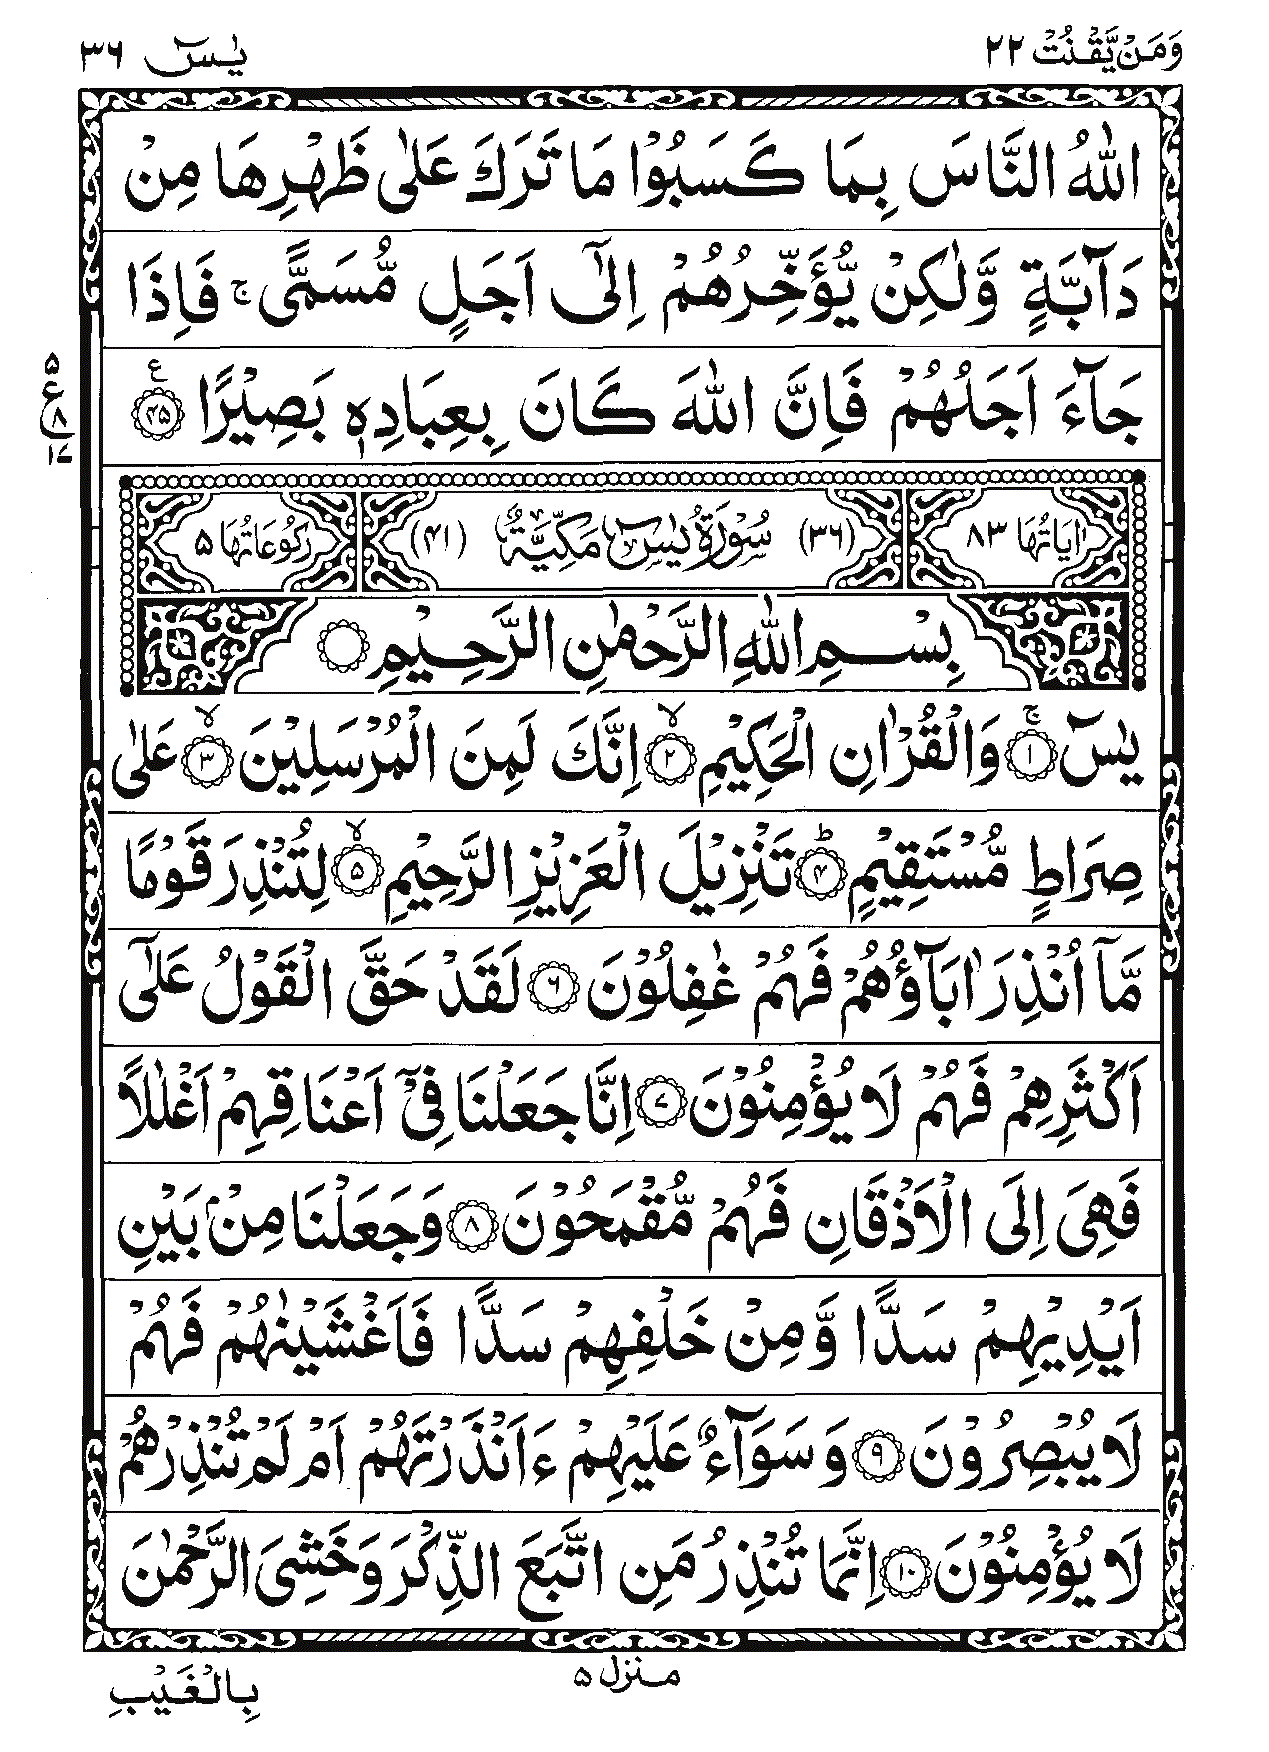 وَمَنْ يَّقْنُتْ ٢٢
يٰسٓ ٣٦
اللّٰهُ النَّاسَ بِمَا كَسَبُوْا مَا تَرَكَ عَلٰى ظَهْرِهَا مِنْ
دَآبَّةٍ وَّلٰكِنْ يُّؤَخِّرُهُمْ اِلٰٓى اَجَلٍ مُّسَمًّى ۚ فَاِذَا
جَآءَ اَجَلُهُمْ فَاِنَّ اللّٰهَ كَانَ بِعِبَادِهٖ بَصِيْرًا ﴿٤٥﴾ ع
٥
ع
٨
١٧
اٰيَاتُهَا ٨٣ (٣٦) سُوْرَةُ يٰسٓ مَكِّيَّةٌ (٤١) رُكُوْعَاتُهَا ٥
بِسْمِ اللّٰهِ الرَّحْمٰنِ الرَّحِيْمِ
يٰسٓ ﴿١﴾ۚ وَالْقُرْاٰنِ الْحَكِيْمِ ﴿٢﴾ۙ اِنَّكَ لَمِنَ الْمُرْسَلِيْنَ ﴿٣﴾ۙ عَلٰى
صِرَاطٍ مُّسْتَقِيْمٍ ﴿٤﴾ؕ تَنْزِيْلَ الْعَزِيْزِ الرَّحِيْمِ ﴿٥﴾ۙ لِتُنْذِرَ قَوْمًا
مَّآ اُنْذِرَ اٰبَآؤُهُمْ فَهُمْ غٰفِلُوْنَ ﴿٦﴾ لَقَدْ حَقَّ الْقَوْلُ عَلٰٓى
اَكْثَرِهِمْ فَهُمْ لَا يُؤْمِنُوْنَ ﴿٧﴾ اِنَّا جَعَلْنَا فِيْٓ اَعْنَاقِهِمْ اَغْلٰلًا
فَهِيَ اِلَى الْاَذْقَانِ فَهُمْ مُّقْمَحُوْنَ ﴿٨﴾ وَجَعَلْنَا مِنْۢ بَيْنِ
اَيْدِيْهِمْ سَدًّا وَّمِنْ خَلْفِهِمْ سَدًّا فَاَغْشَيْنٰهُمْ فَهُمْ
لَا يُبْصِرُوْنَ ﴿٩﴾ وَسَوَآءٌ عَلَيْهِمْ ءَاَنْذَرْتَهُمْ اَمْ لَمْ تُنْذِرْهُمْ
لَا يُؤْمِنُوْنَ ﴿١٠﴾ اِنَّمَا تُنْذِرُ مَنِ اتَّبَعَ الذِّكْرَ وَخَشِيَ الرَّحْمٰنَ
منزل ٥
بِالْغَيْبِ